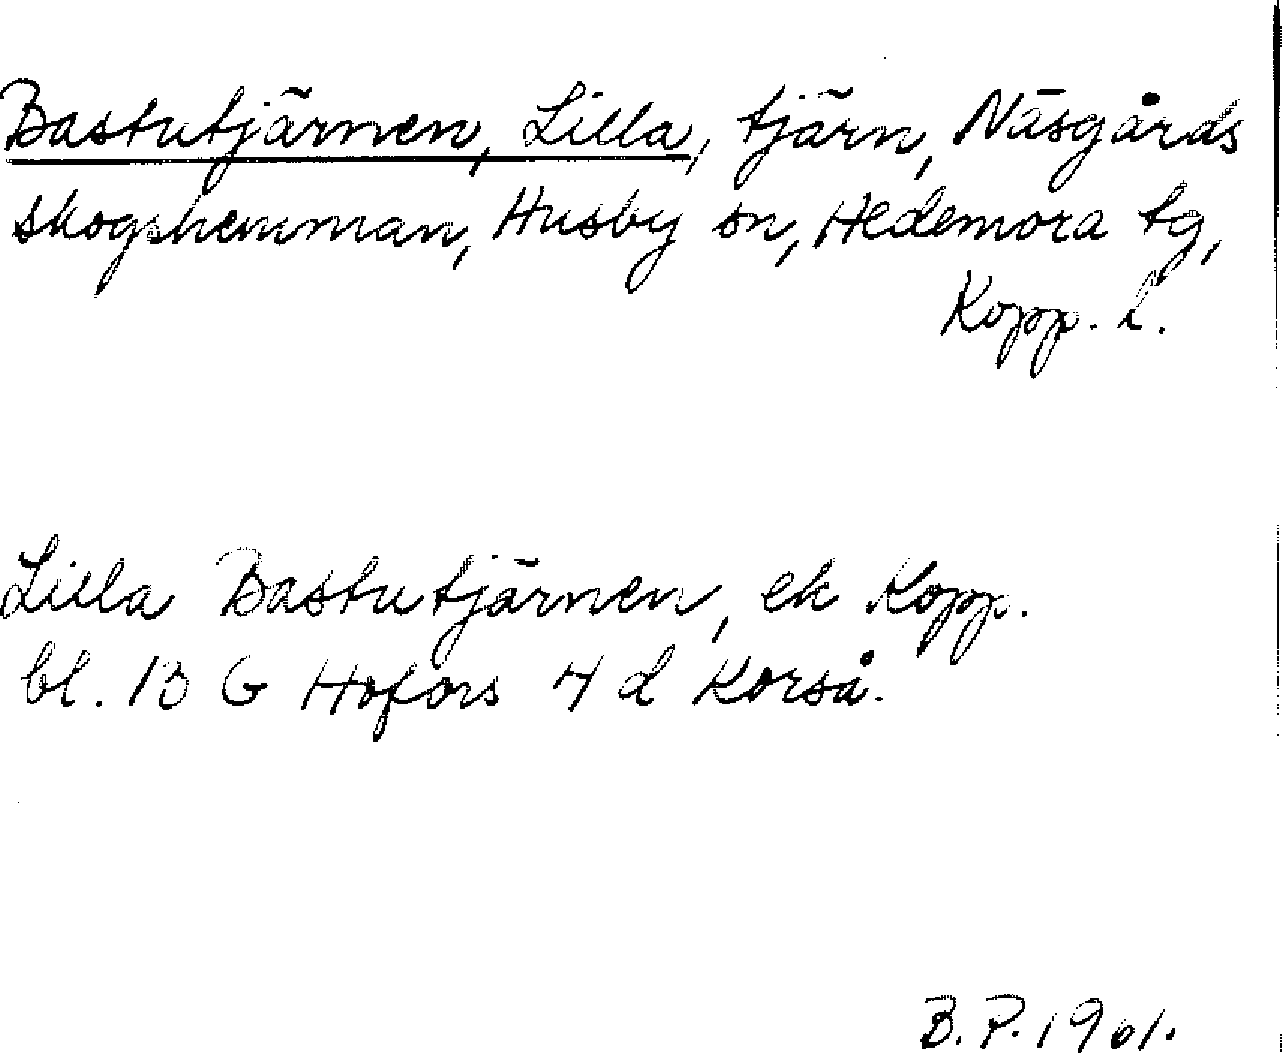 Bastutjärnen, Lilla, tjärn, Näsgårds
skogshemman, Husby sn, Hedemora tg,
Kopp. l.
Lilla Bastutjärnen, ek Kopp.
bl. 13 G Hofors 4 d Korså.
B. P. 1961.